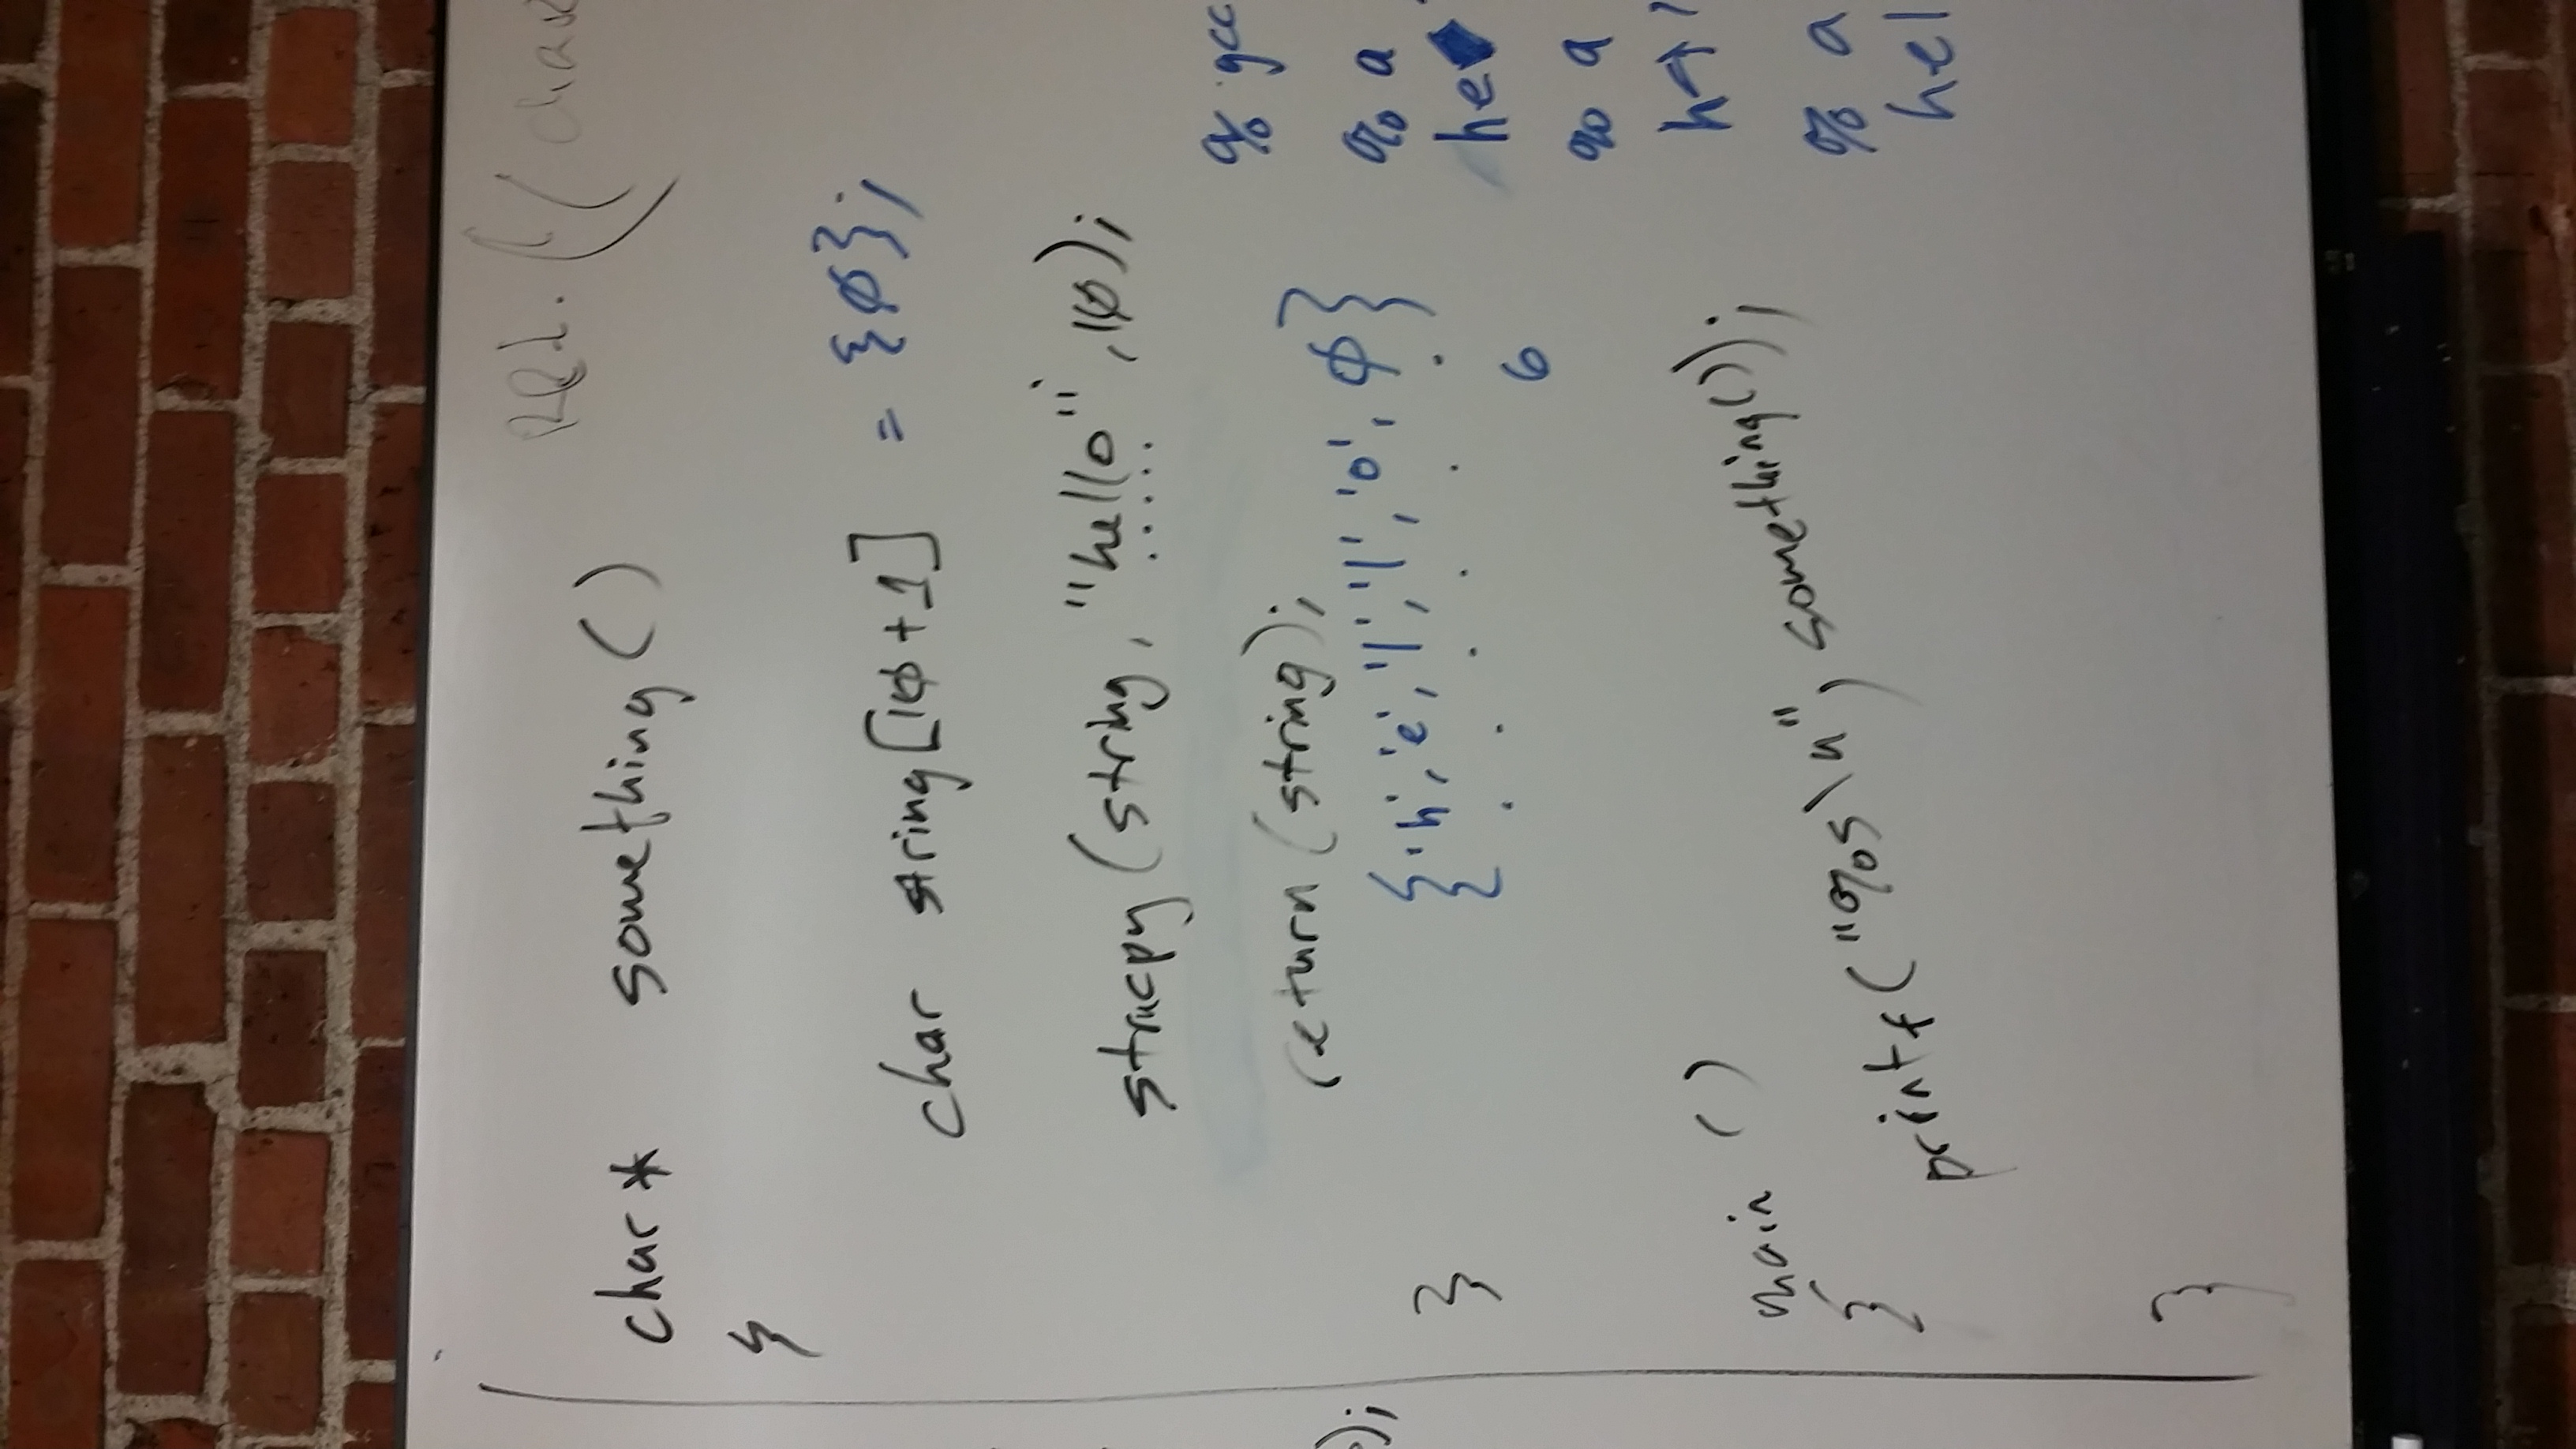 char* something()
{
char string[1φ+1] = {φ};
strncpy(string, "hello", 1φ);
return (string);
{'h','e','l','l','o',φ}
6
}
main ()
{
printf("%s\n", something());
}
% gcc
% a
he
% a
% a
hel
);